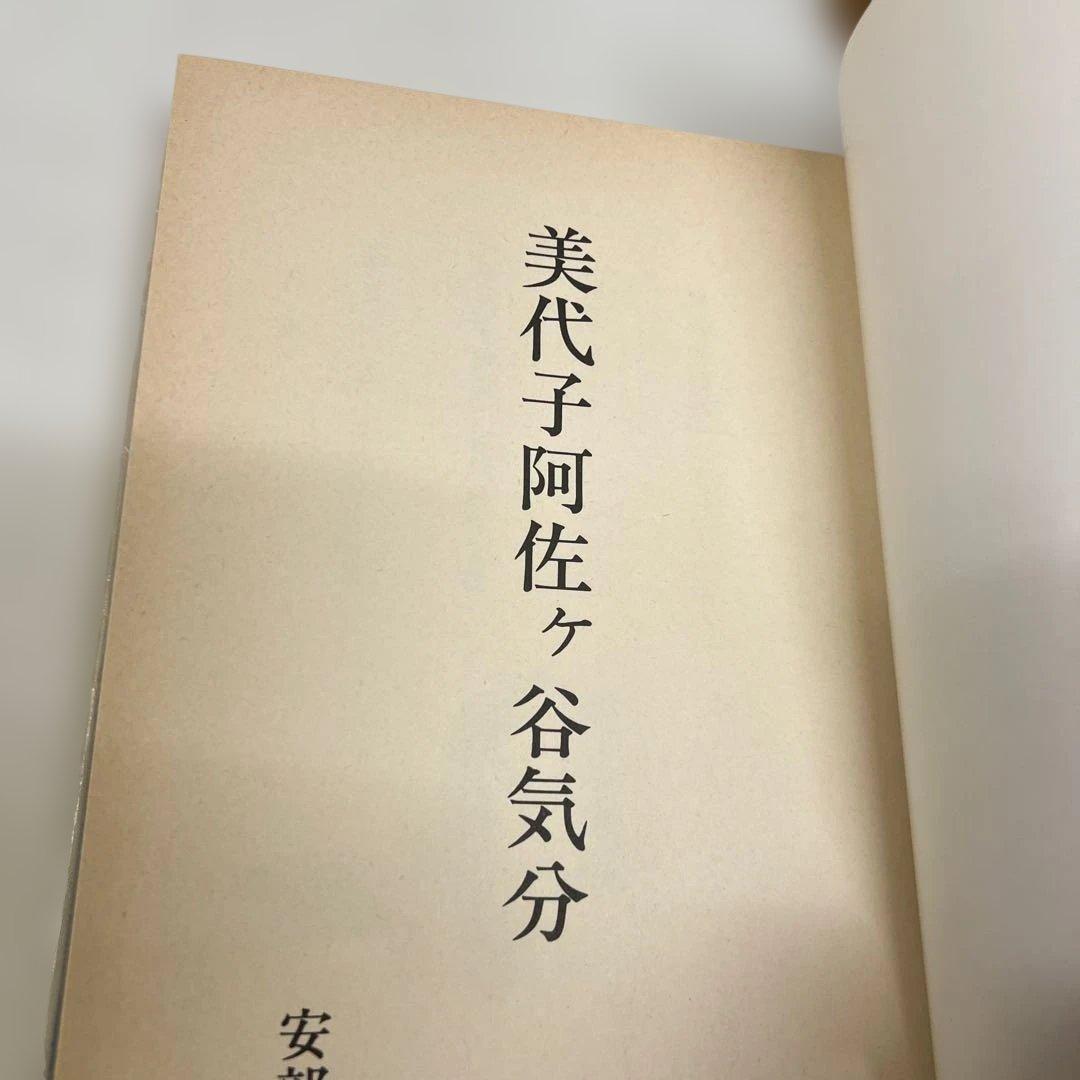 美代子阿佐ヶ谷気分
安部